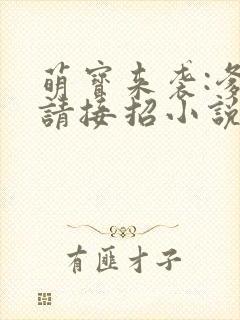 萌寶來袭:爹
請接招小説
有匪才子